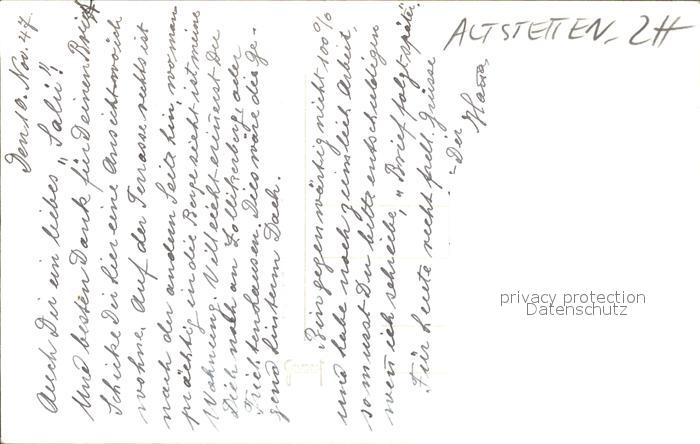 ALTSTETTEN, ZH
Den 10. Nov. 47.
Auch Dir ein liebes "Salü"!
Und besten Dank für Deinen Brief
Schicke Dir hier eine Ansicht wo ich
wohne. Auf der Terrasse rechts ist
nach der andern Seite hin, wo man
prächtig in die Berge sieht ist meine
Wohnung. Villeicht erinnerst Du
Dich noch an Zollikerberg oder
Trichtenhausen. Dies wäre die ge-
gend hinterm Dach.
Bin gegenwärtig nicht 100%
und habe noch ziemlich Arbeit,
so musst Du bitte entschuldigen
wenn ich schreibe, "Brief folgt später.
Für heute recht frdl. Grüsse
- Der
privacy protection
Datenschutz